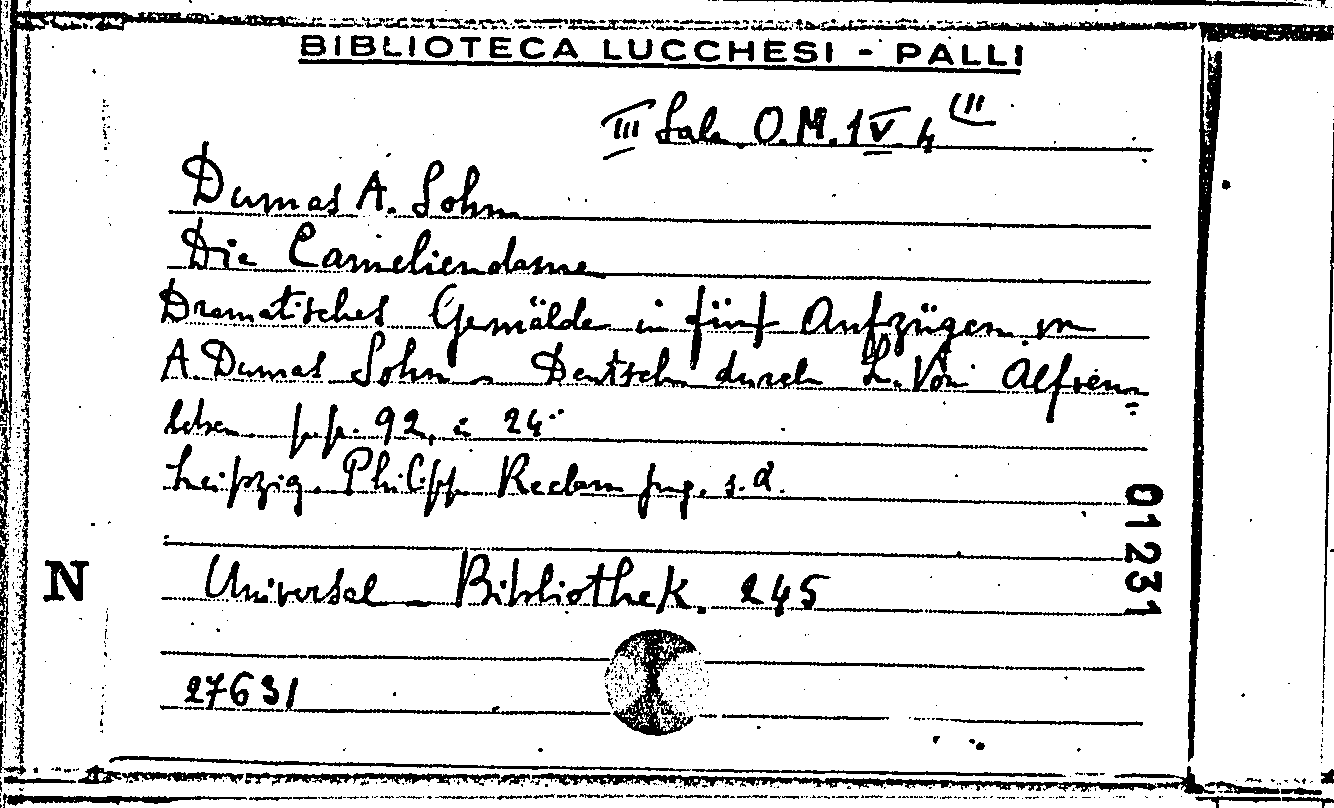 BIBLIOTECA LUCCHESI - PALLI
III Sala. O.M. IV. 4 (II
Dumas A. Sohn
Die Cameliendame
Dramatisches Gemälde in fünf Aufzügen von
A. Dumas Sohn - Deutsch durch L. Von Alfren=
leben pp. 92, in 24°
Leipzig. Philipp Reclam jng. s. d.
01231
N
Universal - Bibliothek. 245
27631